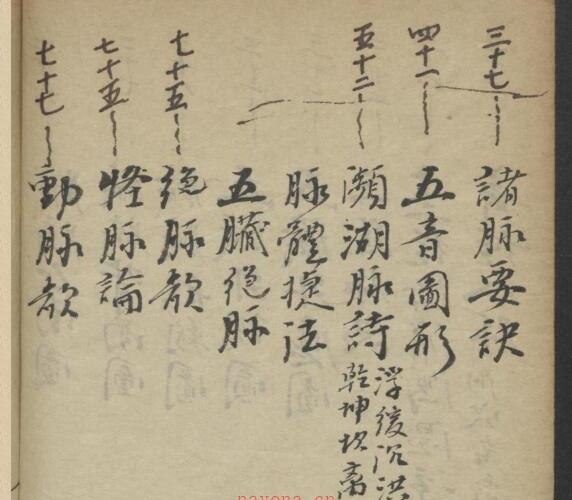 三十七 諸脉要訣
四十一 五音圖形
五十二 瀕湖脉詩 浮緩沉洪
乾坤坎离
脉體捷法
五臟絕脉
七十五 絕脉歌
七十五 怪脉論
七十七 動脉歌